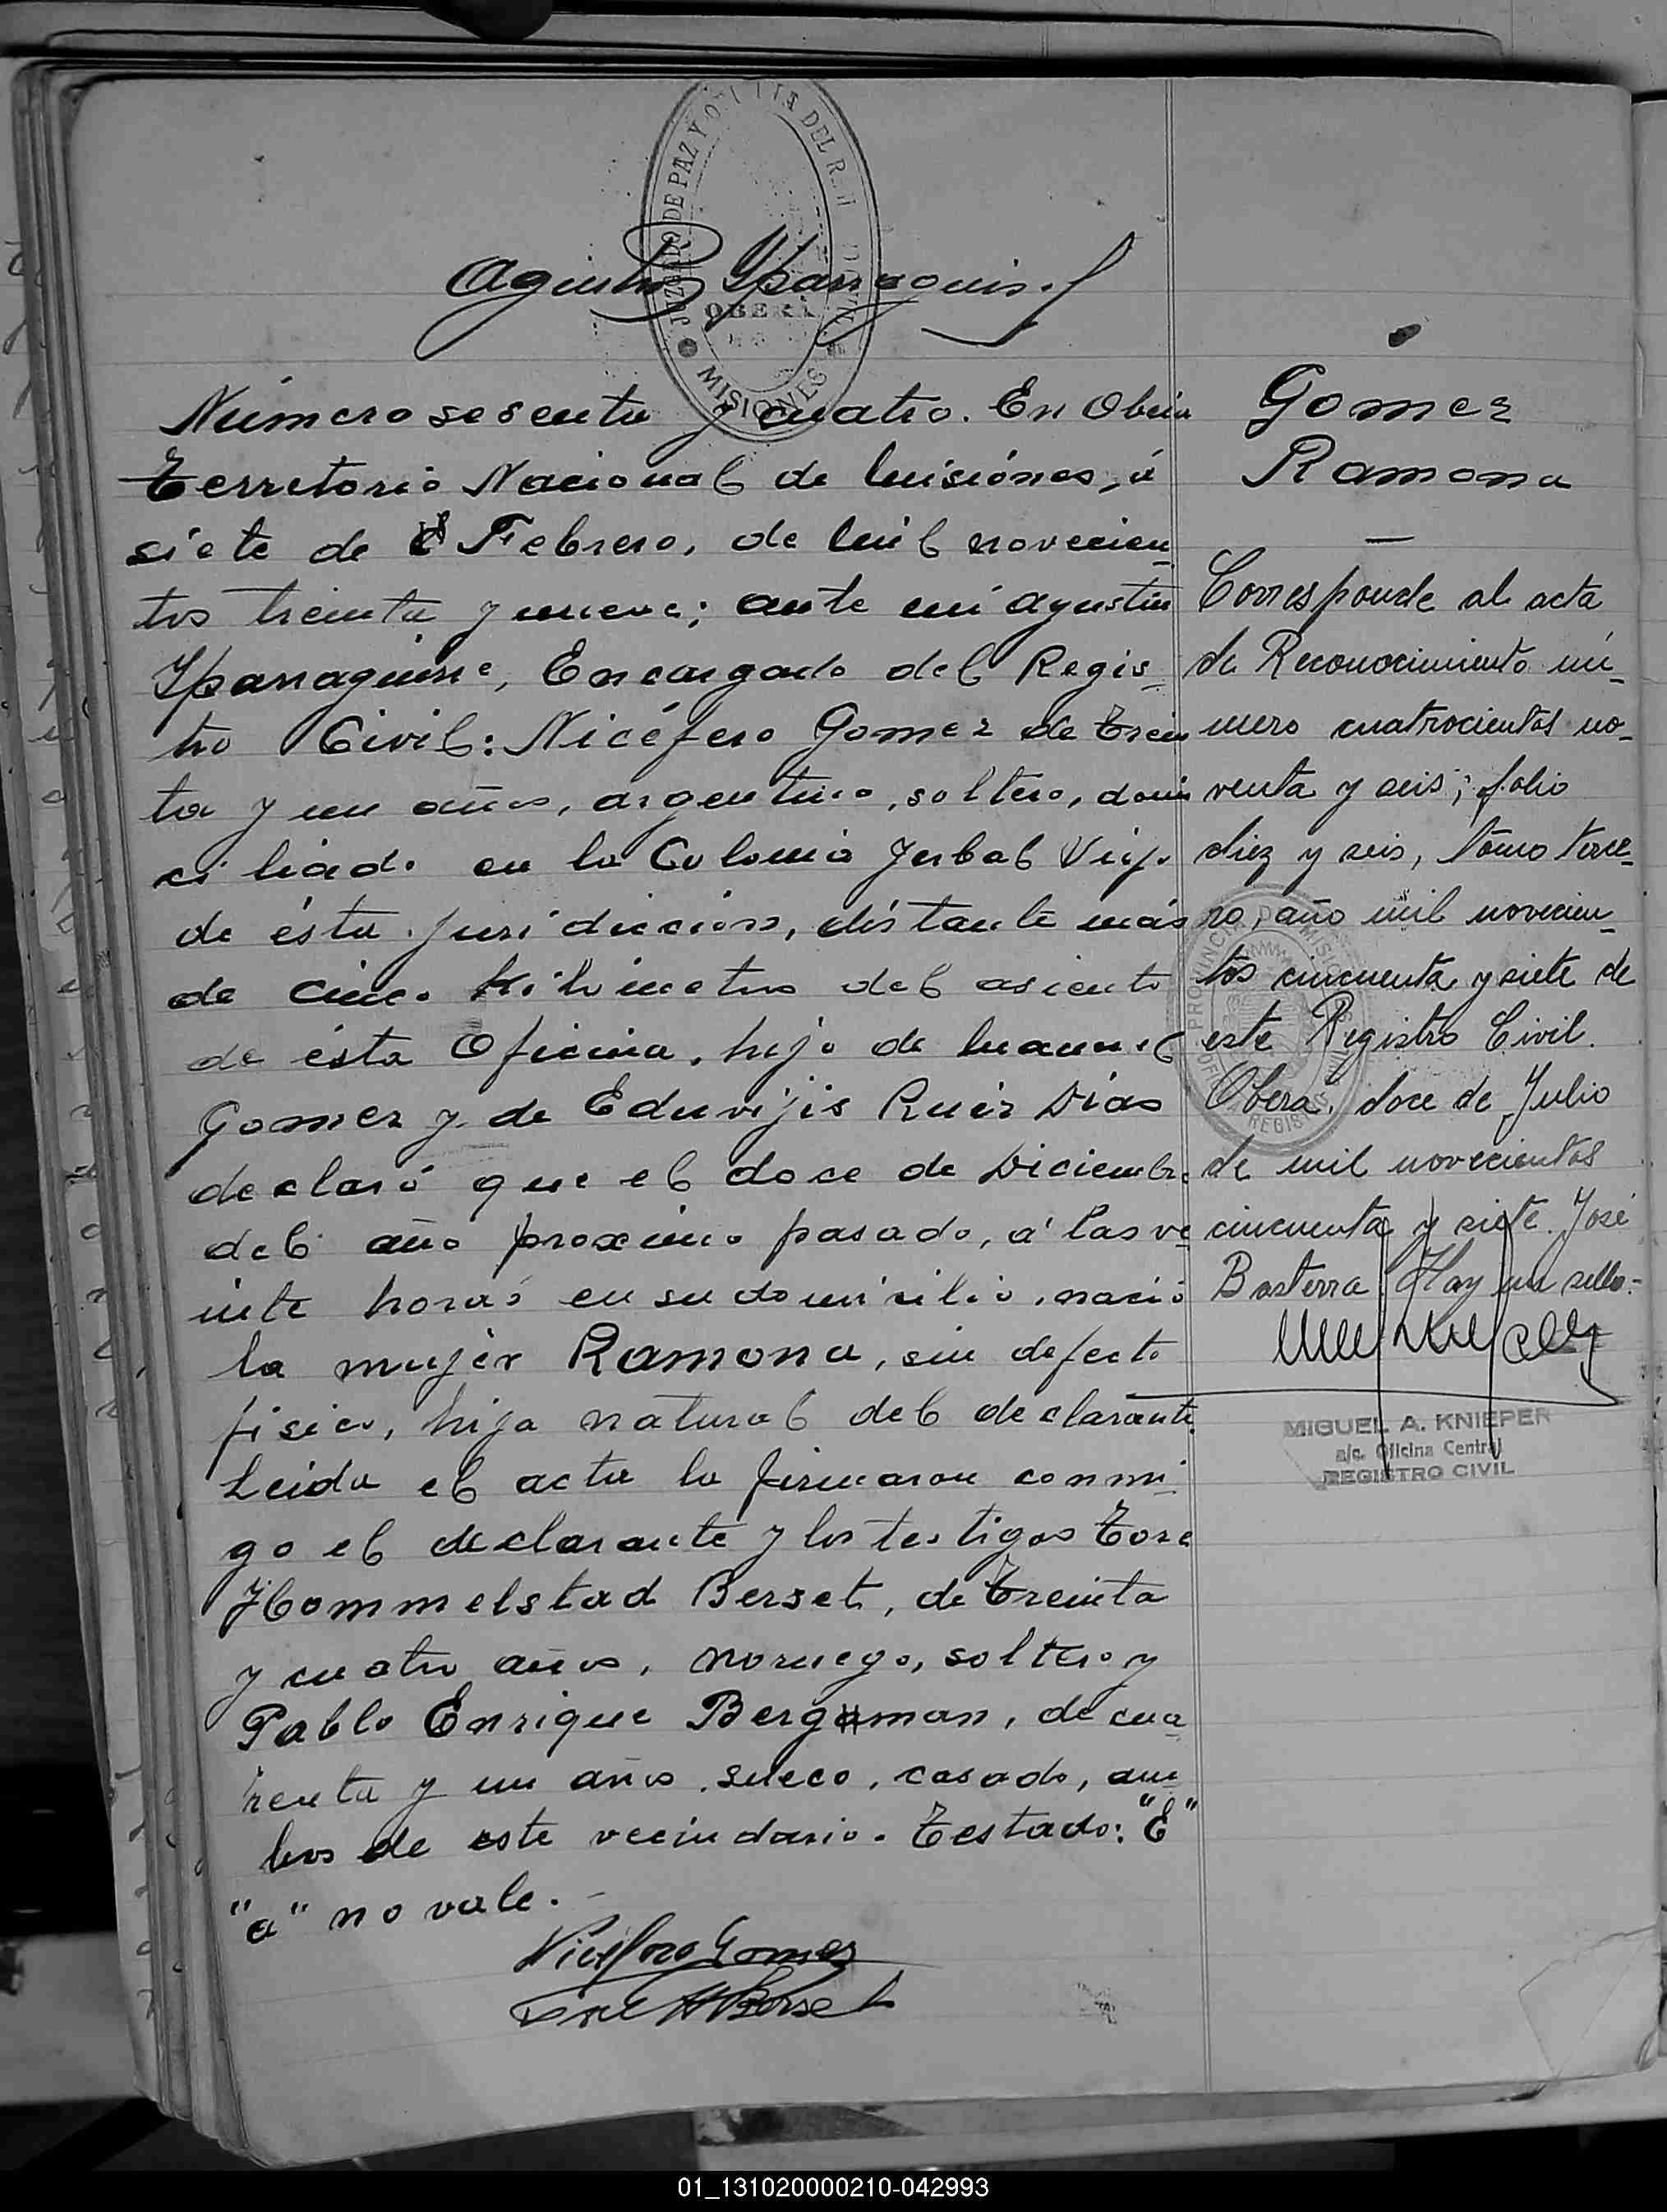 JUZGADO DE PAZ Y OFICINA DEL R. CIVIL NACIONAL
OBERÁ
MISIONES
Agustín Yparraguirre
Número sesenta y cuatro. En Oberá
Territorio Nacional de Misiónes, á
siete de E Febrero, de mil novecien
tos treinta y nueve; ante mí Agustín
Yparraguirre, Encargado del Regis_
tro Civil: Nicéfero Gomez de trein
ta y un años, argentino, soltero, domi
ciliado en la Colonia Yerbal Viejo
de ésta juridiccion, distante más
de cinco kilómetros del asiento
de ésta Oficina, hijo de Manuel
Gomez y de Eduvijis Ruiz Dias
declaró que el doce de Diciembre
del año proximo pasado, á las ve
inte horas en su domicilio, nació
la mujer Ramona, sin defecto
fisico, hija natural del declarante.
Leida el acta la firmaron conmi_
go el declarante y los testigos Tore
Hommelstad Berset, de treinta
y cuatro años, noruego, soltero y
Pablo Enrique Bergaman, de cua_
renta y un años, sueco, casado, am
bos de este vecindario. Testado: "E"
"a" no vale.-
Nicéforo Gomez
Tore H Berset
Gómez
Ramona
—
Corresponde al acta
de Reconocimiento nú_
mero cuatrocientos no_
venta y seis; folio
diez y seis, tomo terce_
ro, año mil novecien_
tos cincuenta y siete de
este Registro Civil.
Oberá, doce de Julio
de mil novecientos
cincuenta y siete. José
Basterra. Hay un sello.-
MIGUEL A. KNIEPER
a/c. Oficina Central
REGISTRO CIVIL
01_131020000210-042993